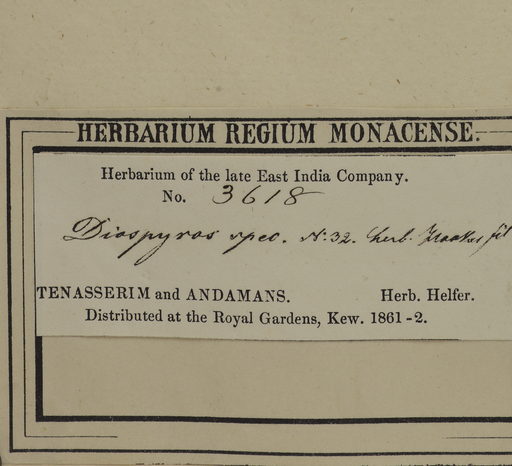 HERBARIUM REGIUM MONACENSE.
Herbarium of the late East India Company.
No. 3618
Diospyros spec. N. 32. herb. Hooker fil
TENASSERIM and ANDAMANS. Herb. Helfer.
Distributed at the Royal Gardens, Kew. 1861-2.